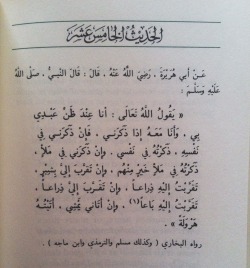 الحَدِيثُ الخَامِسَ عَشَرَ
عَنْ أَبِي هُرَيْرَةَ ، رَضِيَ اللَّهُ عَنْهُ ، قَالَ : قَالَ النَّبِيُّ ، صَلَّى اللَّهُ
عَلَيْهِ وَسَلَّمَ :
« يَقُولُ اللَّهُ تَعَالَى : أَنَا عِنْدَ ظَنِّ عَبْدِي
بِي ، وَأَنَا مَعَهُ إِذَا ذَكَرَنِي ، فَإِنْ ذَكَرَنِي فِي
نَفْسِهِ ، ذَكَرْتُهُ فِي نَفْسِي . وَإِنْ ذَكَرَنِي فِي مَلَأٍ ،
ذَكَرْتُهُ فِي مَلَأٍ خَيْرٍ مِنْهُمْ ، وَإِنْ تَقَرَّبَ إِلَيَّ بِشِبْرٍ ،
تَقَرَّبْتُ إِلَيْهِ ذِرَاعاً ، وَإِنْ تَقَرَّبَ إِلَيَّ ذِرَاعاً ،
تَقَرَّبْتُ إِلَيْهِ بَاعاً (١) ، وَإِنْ أَتَانِي يَمْشِي ، أَتَيْتُهُ
هَرْوَلَةً »
رواه البخاري ( وكذلك مسلم والترمذي وابن ماجه ) .